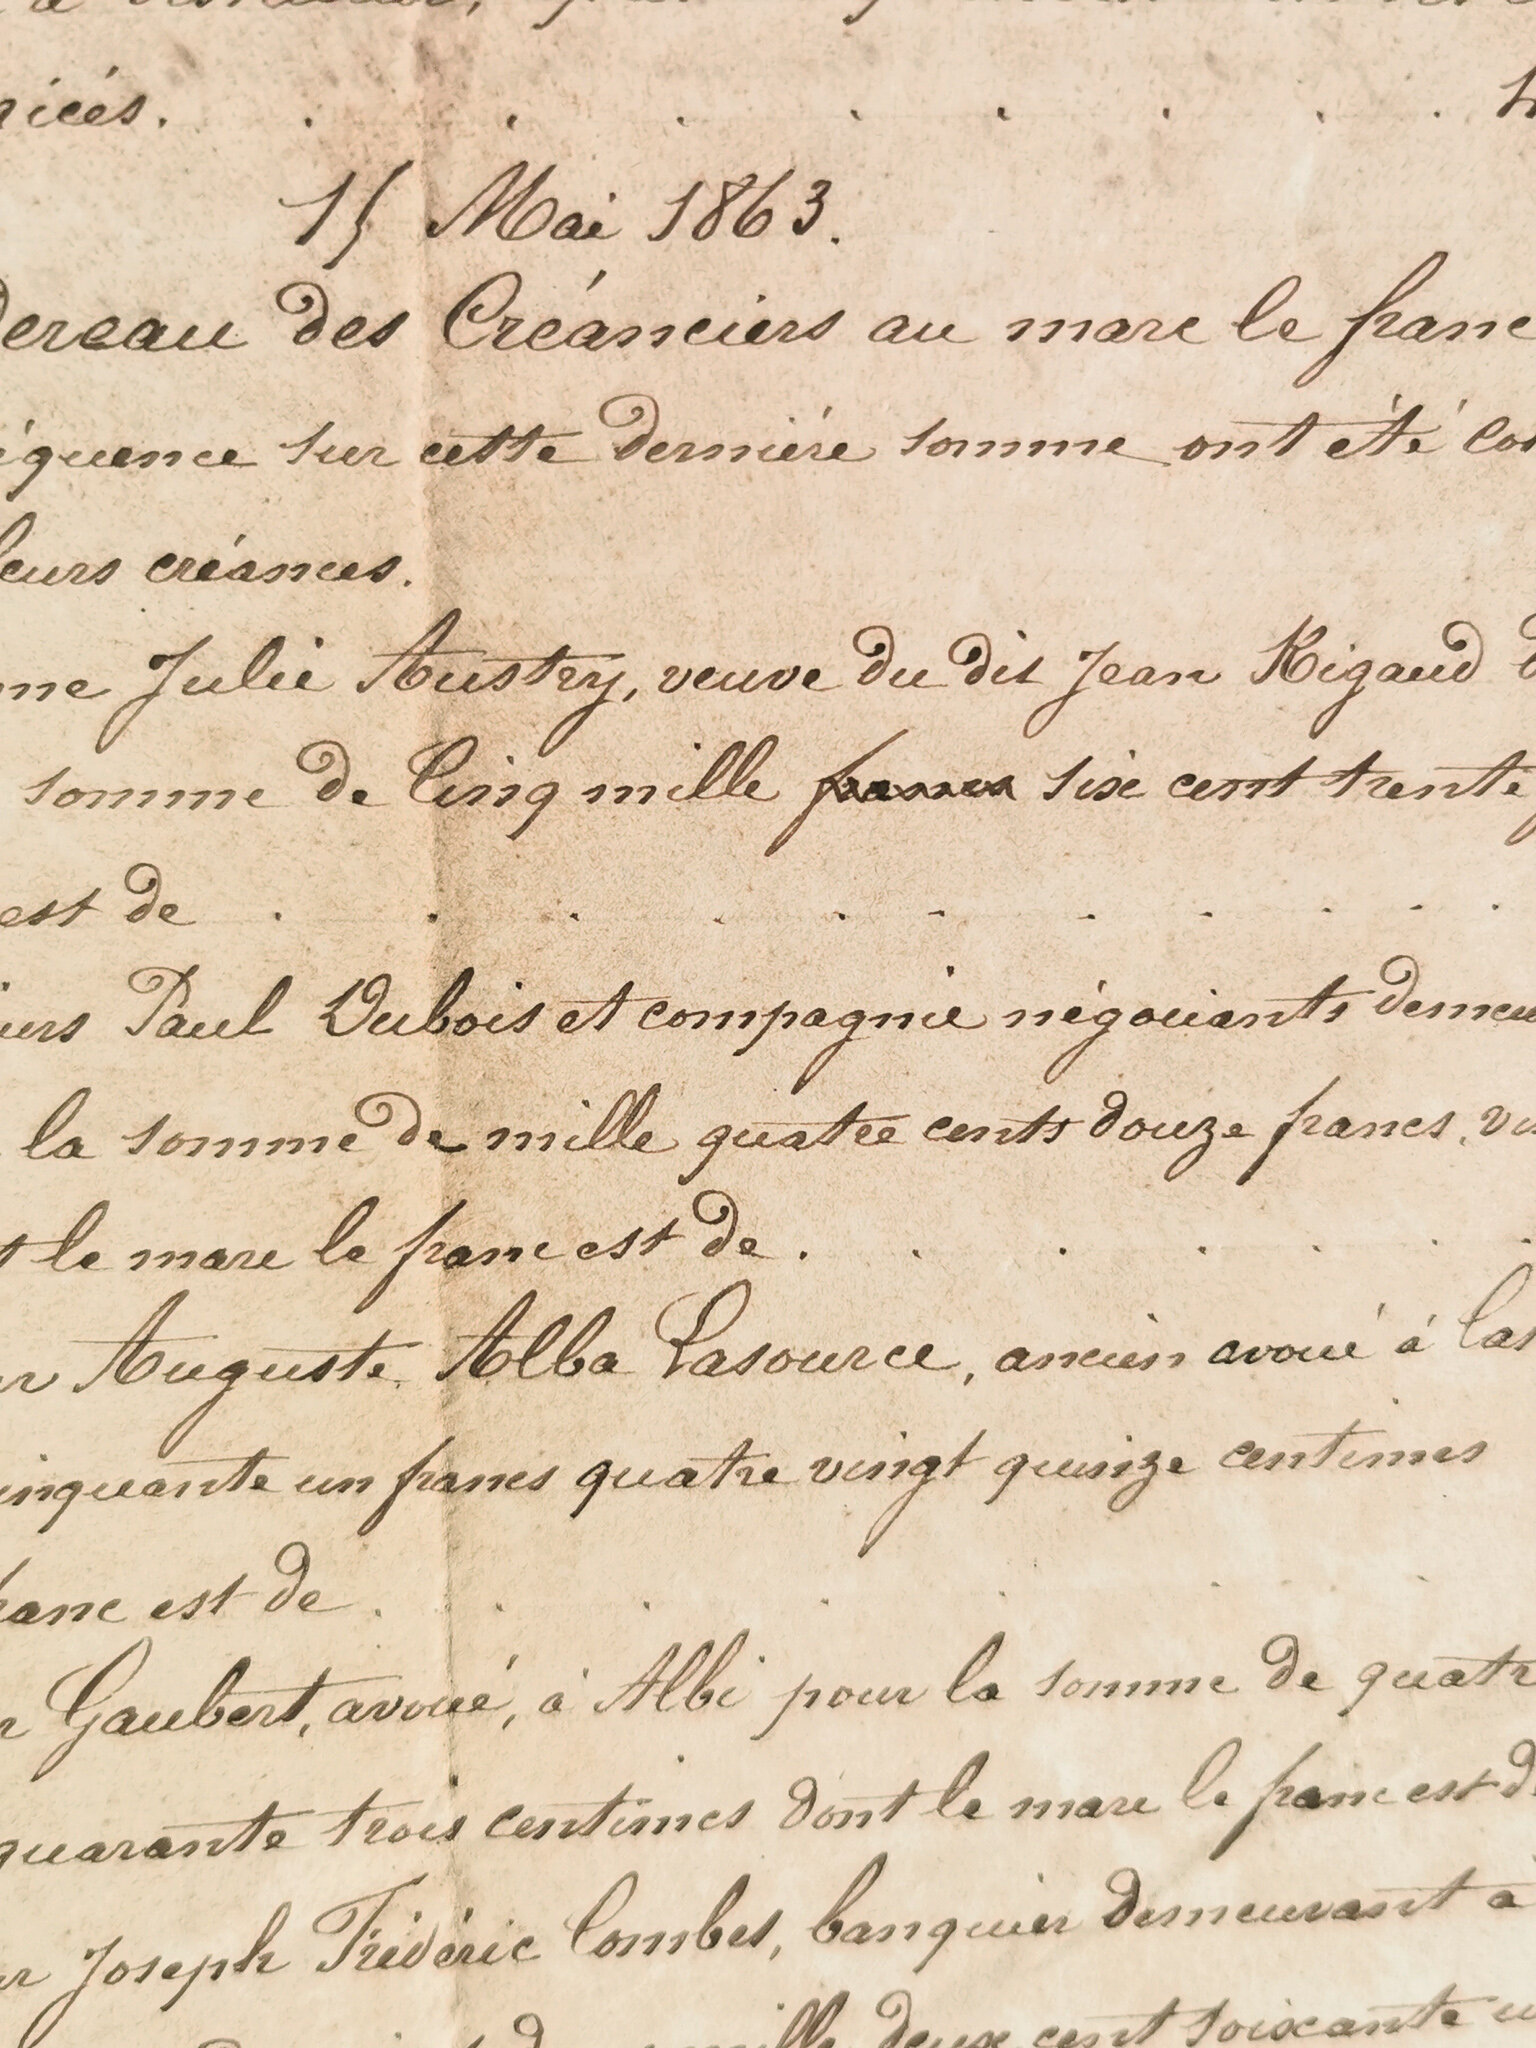 15 Mai 1863.
dereau des Créanciers au marc le franc
équence sur cette dernière somme ont été co
leurs créances.
me Julie Austry, veuve du dit Jean Rigaud d
somme de Cinq mille francs six cent trente
est de
urs Paul Dubois et compagnie négociants demeu
la somme de mille quatre cents douze francs, vi
t le marc le franc est de
r Auguste Alba Lasource, ancien avoué à Cas
inquante un francs quatre vingt quinze centimes
franc est de
r Gaubert, avoué, à Albi pour la somme de quatr
quarante trois centimes dont le marc le franc est d
ur Joseph Frédéric Combes, banquier demeurant à
mille deux cent soixante u